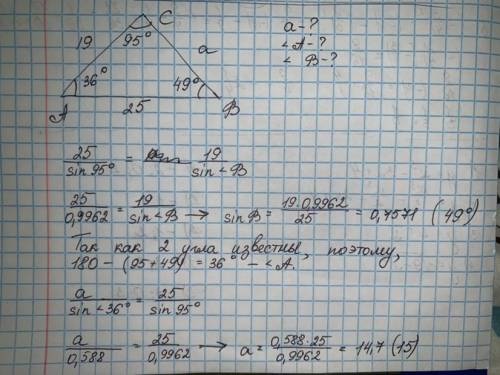 C
19
95°
a
36°
49°
A
25
B
a-?
<A-?
< B-?
25/sin 95° = 19/sin<B
25/0,9962 = 19/sin<B → sin B = 19·0,9962/25 = 0,7571 (49°)
Так как 2 угла известны, поэтому,
180 - (95+49) = 36° - <A.
a/sin<36° = 25/sin 95°
a/0,588 = 25/0,9962 → a = 0,588·25/0,9962 = 14,7 (15)